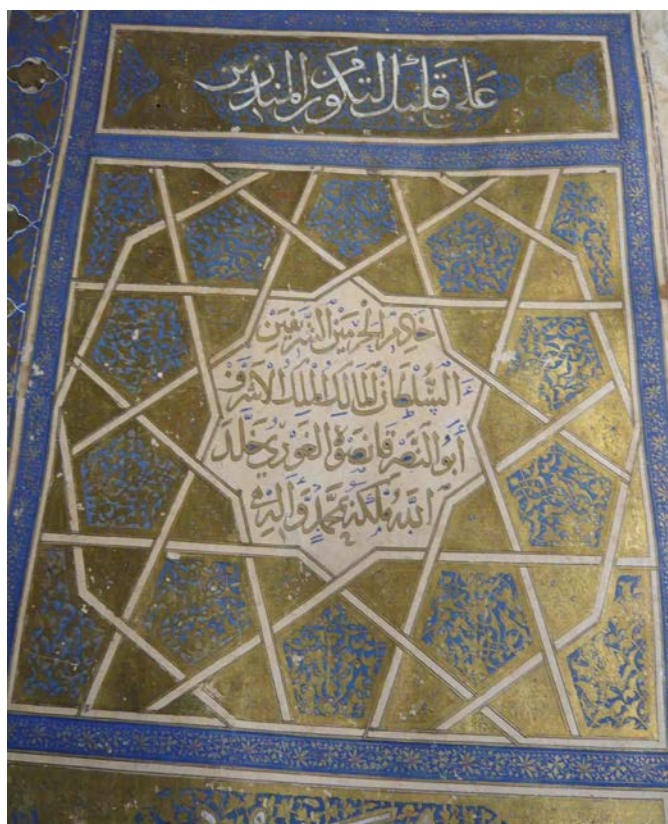 على قلبك لتكون من المنذرين
خادم الحرمين الشريفين
السلطان المالك الملك الأشرف
أبو النصر قانصوه الغوري خلد
الله ملكه بمحمد وآله